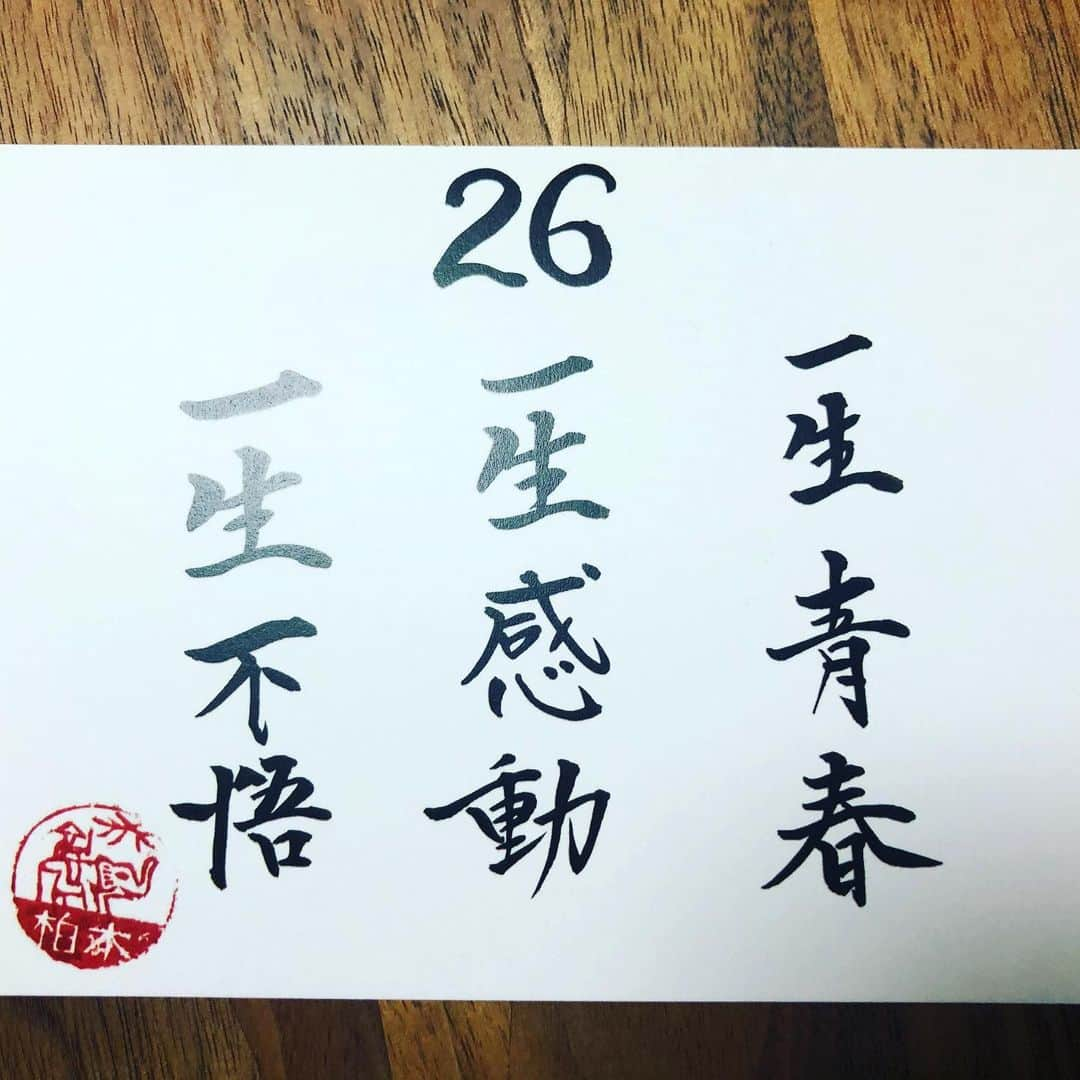 26
一生青春
一生感動
一生不悟